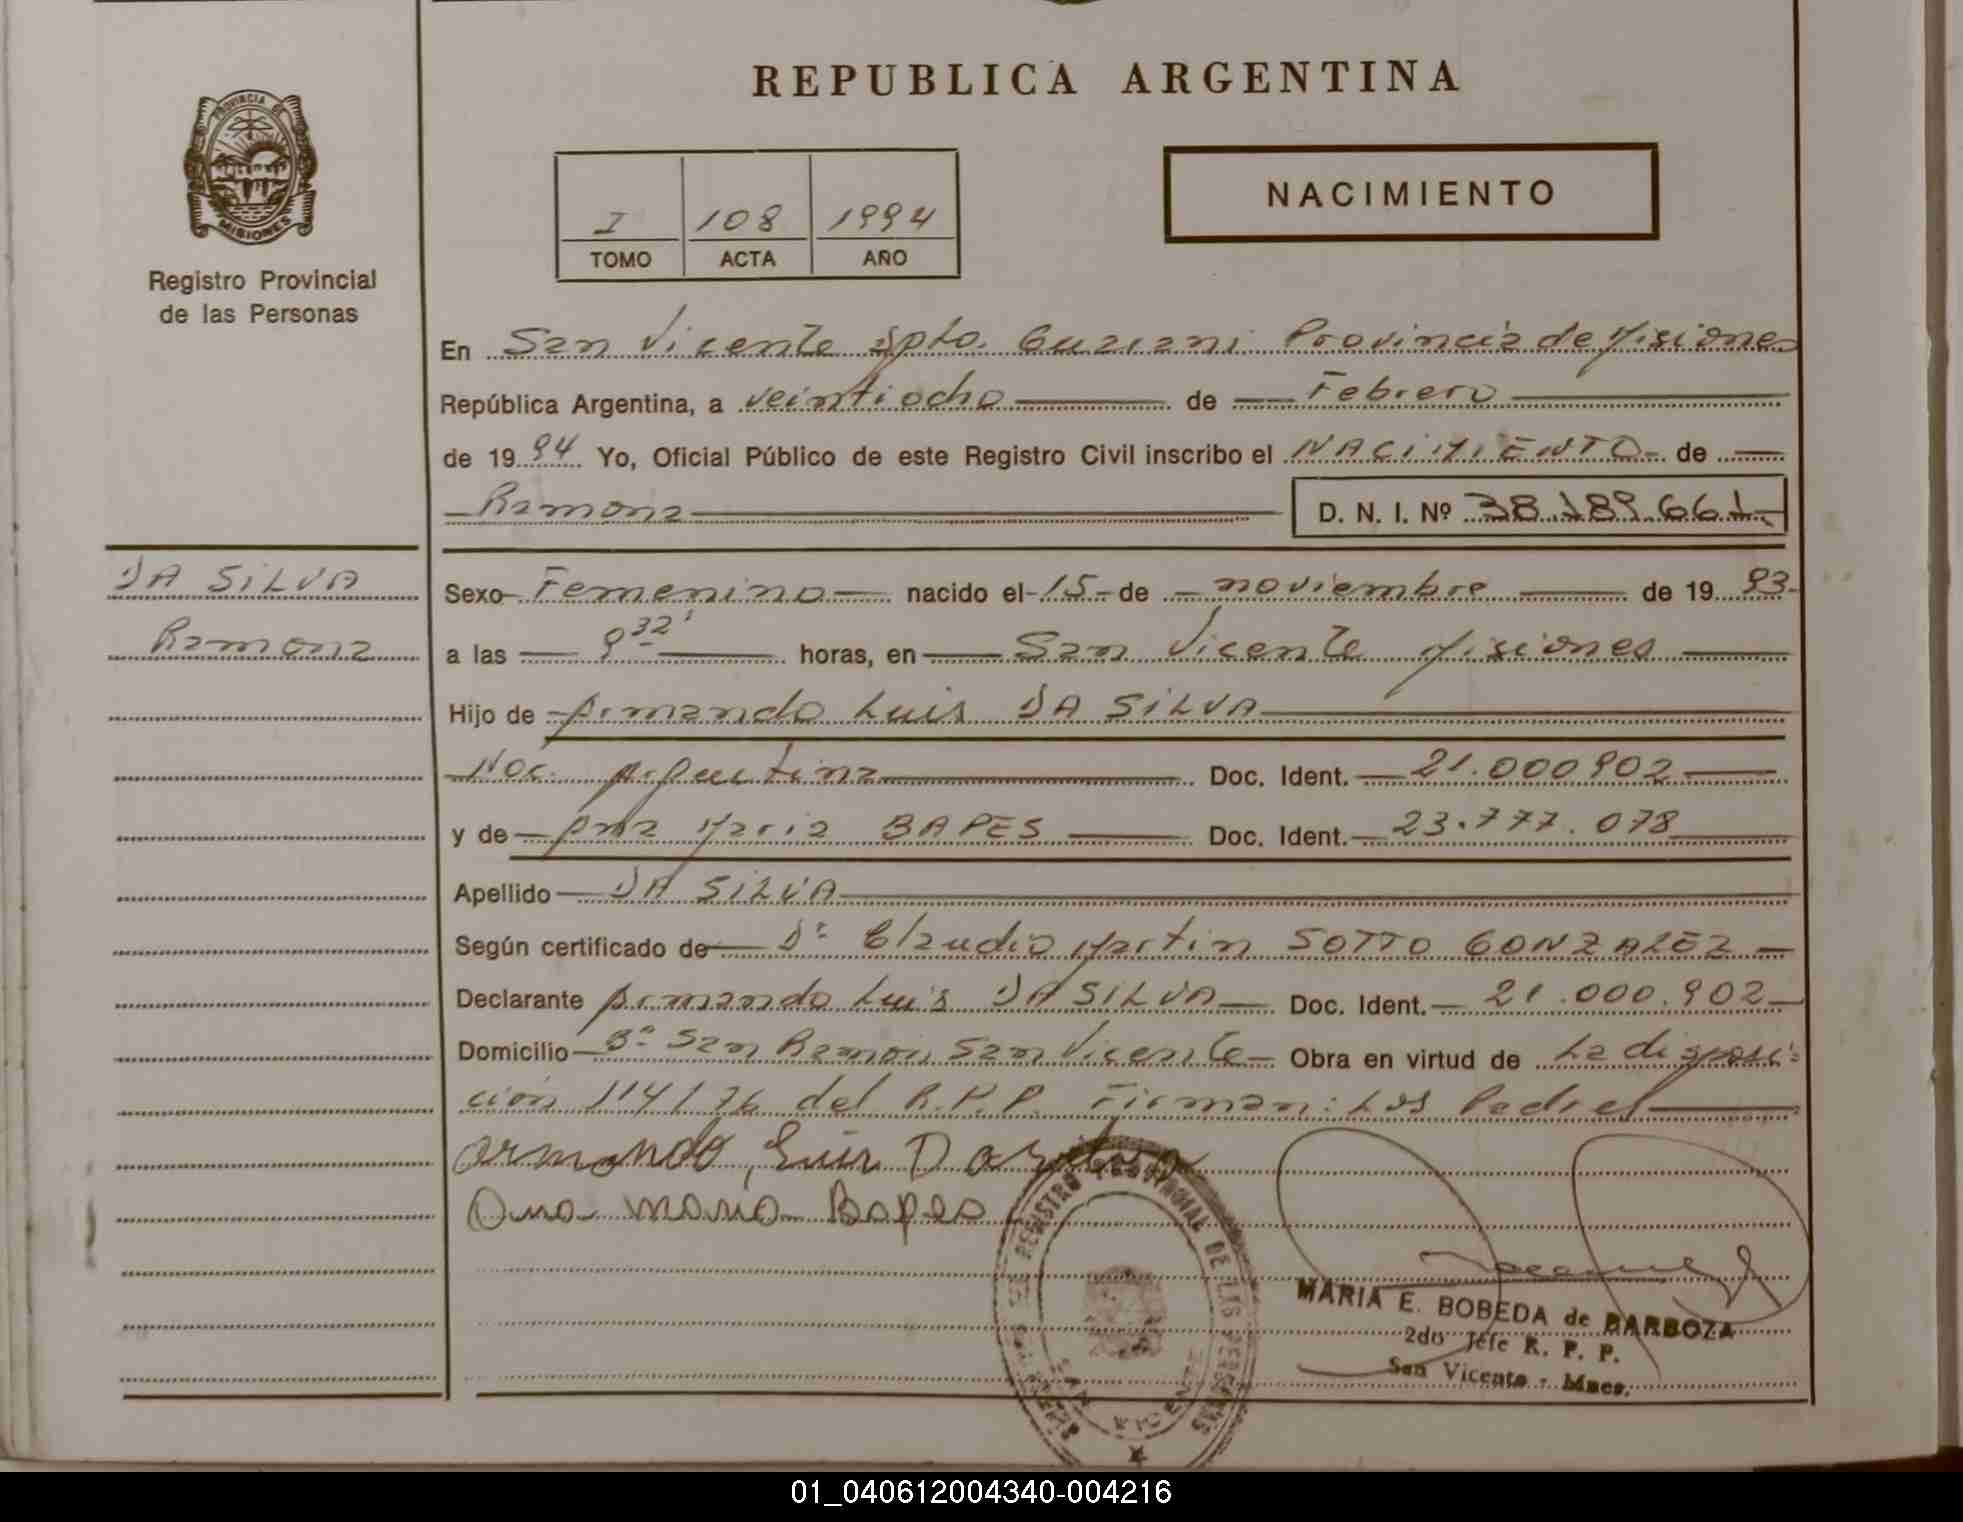 REPUBLICA ARGENTINA
PROVINCIA DE
MISIONES
Registro Provincial
de las Personas
NACIMIENTO
I 108 1994
TOMO ACTA AÑO
En San Vicente Dpto. Guarani Provincia de Misiones
República Argentina, a veintiocho de Febrero
de 1994 Yo, Oficial Público de este Registro Civil inscribo el NACIMIENTO de
Ramona D. N. I. Nº 38.189.661
DA SILVA
Ramona
Sexo Femenino nacido el 15 de noviembre de 1993
a las 9 32' horas, en San Vicente Misiones
Hijo de Armando Luis DA SILVA
Nac. Argentina Doc. Ident. 21.000902
y de Ana Maria BAPES Doc. Ident. 23.777.078
Apellido DA SILVA
Según certificado de Dr Claudio Martin SOTTO GONZALEZ
Declarante Armando Luis DA SILVA Doc. Ident. 21.000.902
Domicilio Bº San Ramon San Vicente Obra en virtud de La disposi-
ción 114/76 del R.P.P. Firman: Los Padres
Armando, Luis Da Silva
Ana maria Bapes
REGISTRO PROVINCIAL DE LAS PERSONAS
SAN VICENTE
MARIA E. BOBEDA de BARBOZA
2do Jefe R. P. P.
San Vicente - Mnes.
01_040612004340-004216